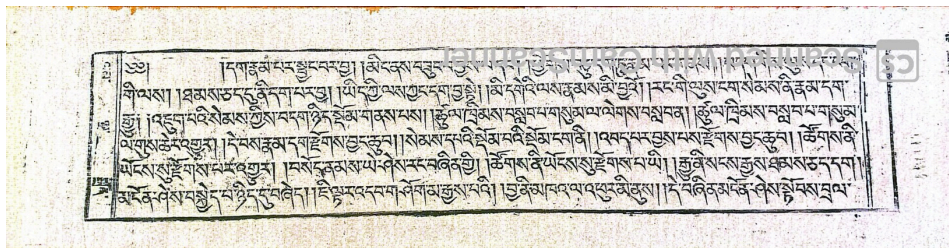 །དག་རྣམ་པར་སྦྱང་བར་བྱ། །མིང་ནས་བཟུང་བ་
གི་ལས། །ཐམས་ཅད་དུ་ནི་དག་པར་བྱ། །ཡིད་ཀྱི་ལས་ཀྱང་དག་བྱ་སྟེ། །མི་དགེའི་ལས་རྣམས་མི་བྱའོ། །རང་གི་ལུས་ངག་སེམས་ནི་རྣམ་དག་
།འཇུག་པའི་སེམས་ཀྱིས་བདག་ཉིད་སྡོམ་གནས་པས། །ཚུལ་ཁྲིམས་བསླབ་པ་གསུམ་ལ་ལེགས་བསླབས་ན། །ཚུལ་ཁྲིམས་བསླབ་པ་གསུམ་
ལ་གུས་ཆེར་འགྱུར། །དེ་བས་རྣམ་དག་རྫོགས་བྱང་ཆུབ། །སེམས་དཔའི་སྡོམ་པའི་སྡོམ་དག་ནི། །འབད་པར་བྱས་པས་རྫོགས་བྱང་ཆུབ། །ཚོགས་ནི་
ཡོངས་སུ་རྫོགས་པར་འགྱུར། །བསོད་ནམས་ཡེ་ཤེས་རང་བཞིན་གྱི། །ཚོགས་ནི་ཡོངས་སུ་རྫོགས་པ་ཡི། །རྒྱུ་ནི་སངས་རྒྱས་ཐམས་ཅད་དག །
མངོན་ཤེས་བསྐྱེད་པ་ཉིད་དུ་བཞེད། །ཇི་ལྟར་འདབ་གཤོག་མ་རྒྱས་པའི། །བྱ་ནི་མཁའ་ལ་འཕུར་མི་ནུས། །དེ་བཞིན་མངོན་ཤེས་སྟོབས་བྲལ་